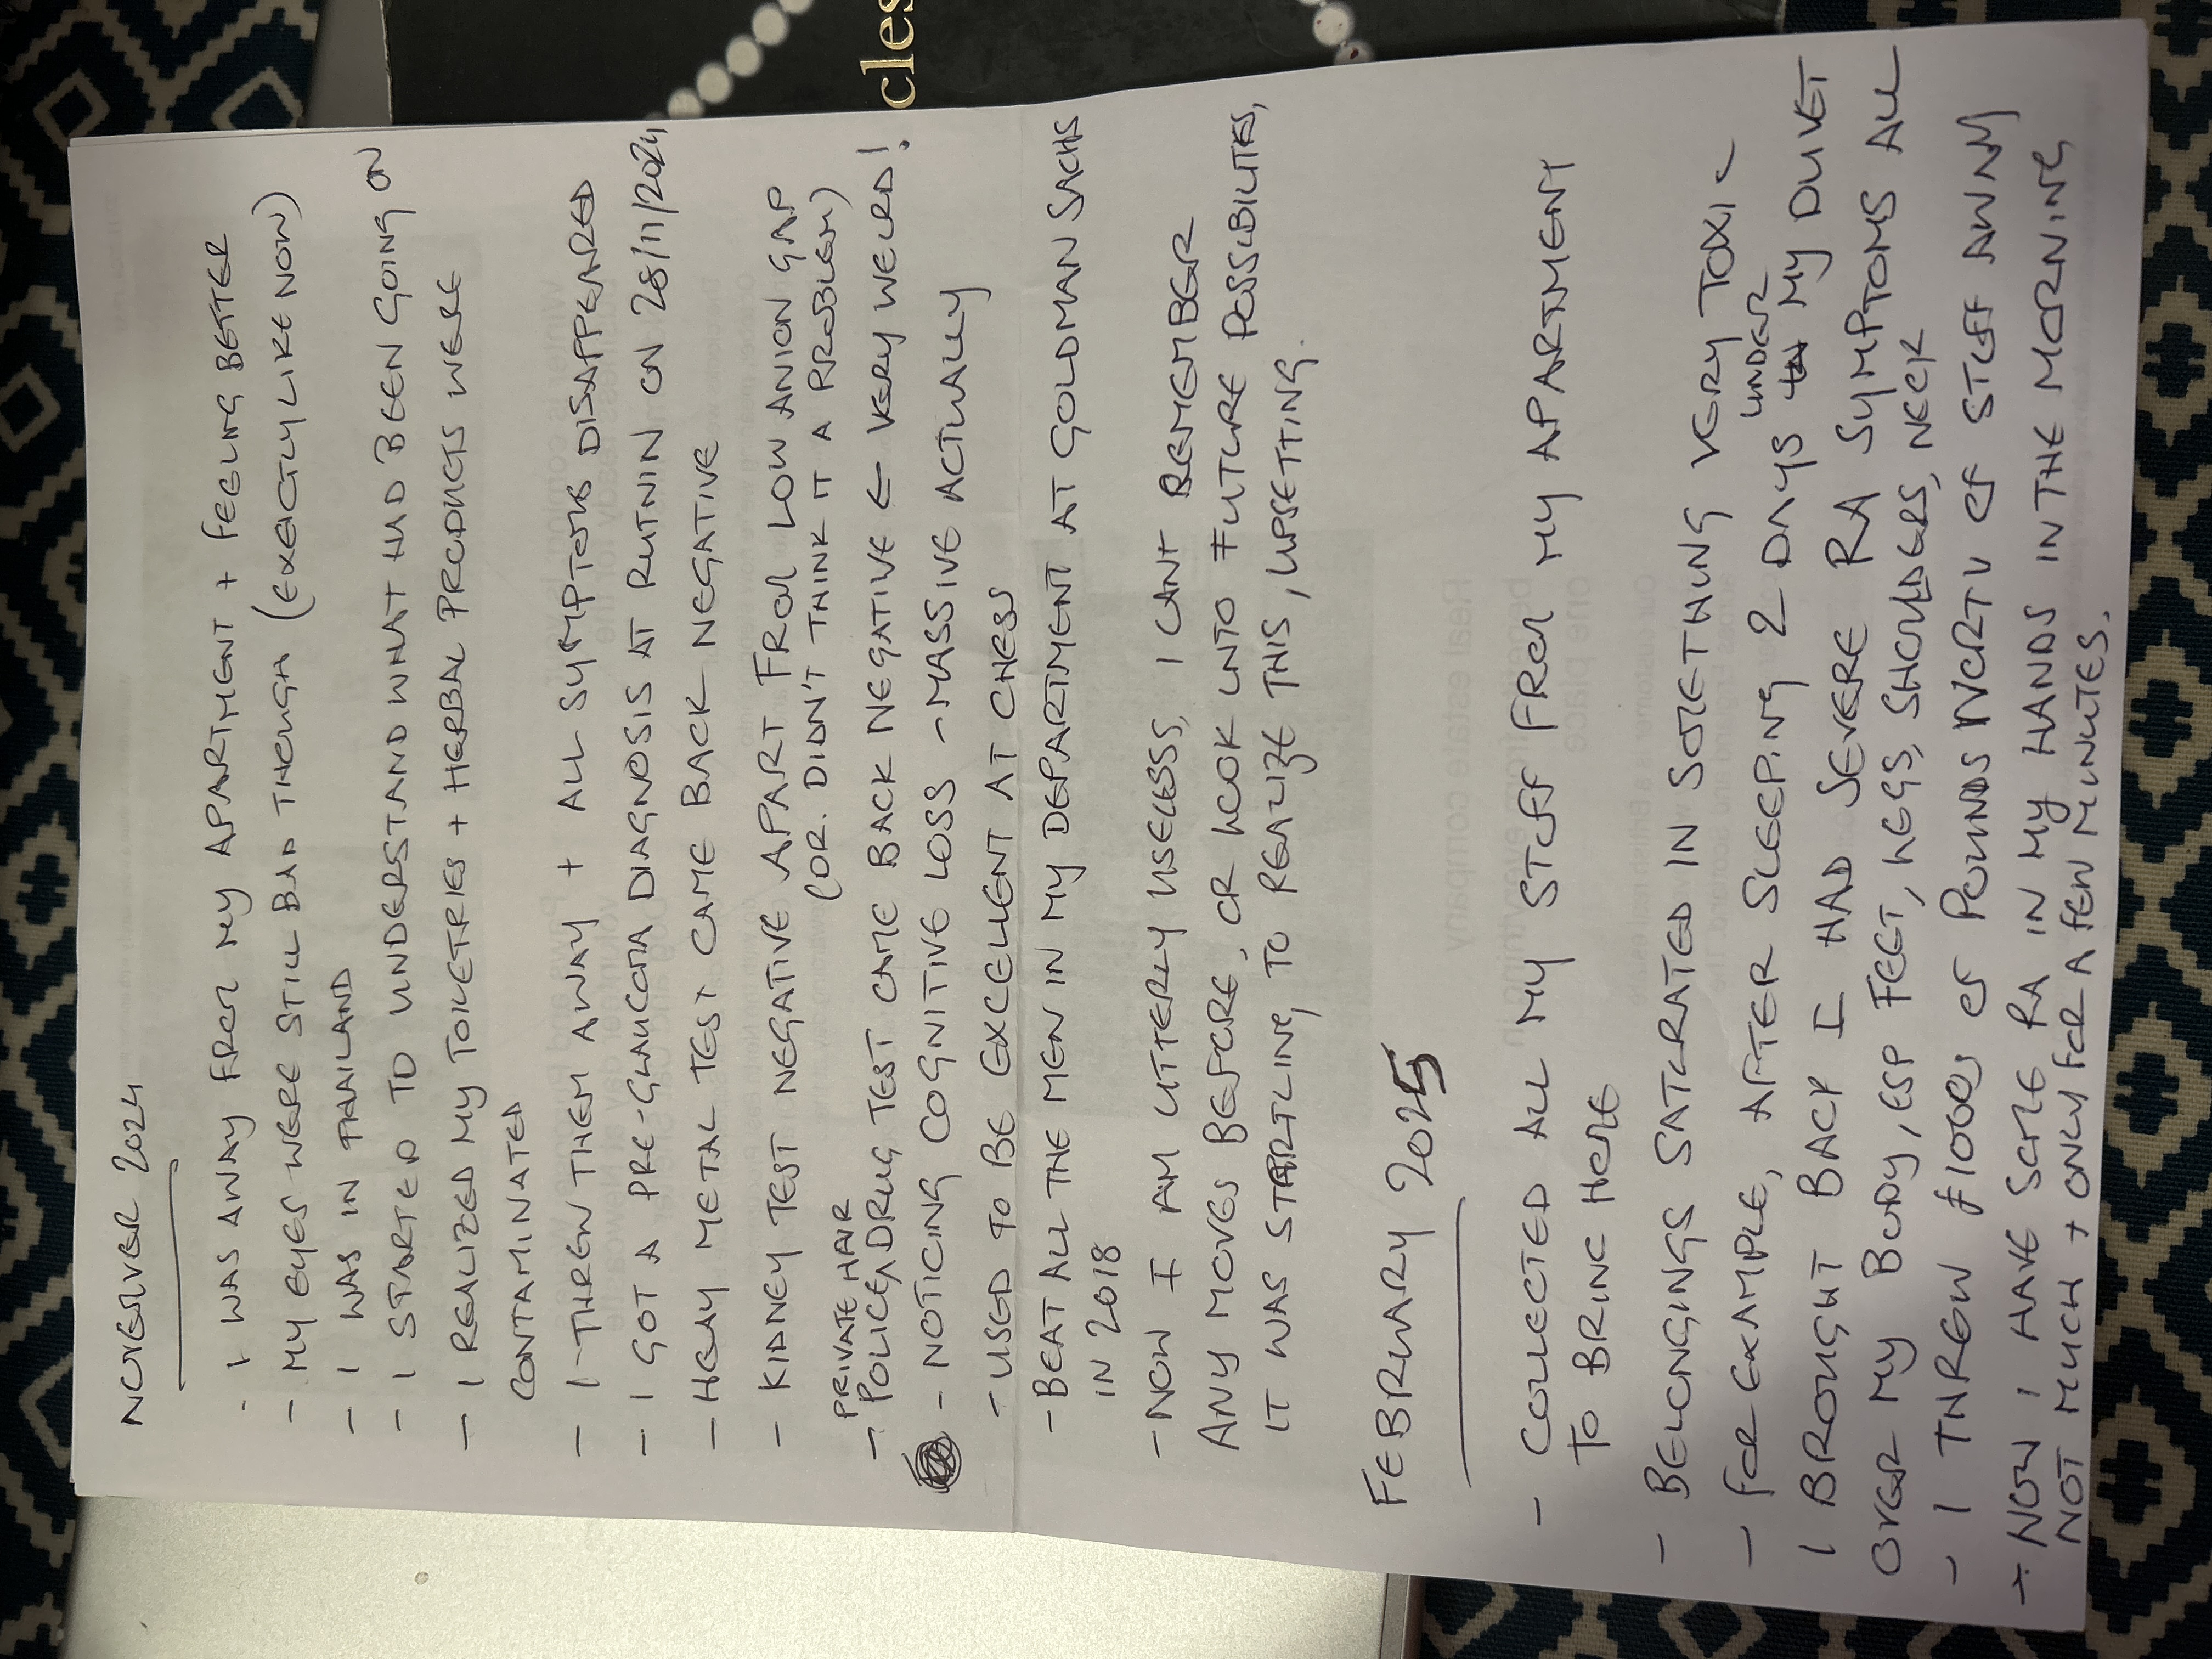 NOVEMVER 2024
- I WAS AWAY FROM MY APARTMENT + FEELING BETTER
- MY EYES WERE STILL BAD THOUGH (EXACTLY LIKE NOW)
- I WAS IN THAILAND
- I STARTED TO UNDERSTAND WHAT HAD BEEN GOING ON
- I REALIZED MY TOILETRIES + HERBAL PRODUCTS WERE
CONTAMINATED
- I THREW THEM AWAY + ALL SYMPTOMS DISAPPEARED
- I GOT A PRE-GLAUCOMA DIAGNOSIS AT RUTNIN ON 28/11/2024
- HEAVY METAL TEST CAME BACK NEGATIVE
- KIDNEY TEST NEGATIVE APART FROM LOW ANION GAP
(DR. DIDN'T THINK IT A PROBLEM)
PRIVATE HAIR
- POLICE DRUG TEST CAME BACK NEGATIVE ← VERY WEURD!
- NOTICING COGNITIVE LOSS - MASSIVE ACTUALLY
- USED TO BE EXCELLENT AT CHESS
- BEAT ALL THE MEN IN MY DEPARTMENT AT GOLDMAN SACHS
IN 2018
- NOW I AM UTTERLY USELESS, I CANT REMEMBER
ANY MOVES BEFORE, OR LOOK UNTO FUTURE POSSIBILITIES,
IT WAS STARTLING TO REALIZE THIS, UPSETTING.
FEBRUARY 2025
- COLLECTED ALL MY STUFF FROM MY APARTMENT
TO BRING HERE
- BELONGINGS SATURATED IN SOMETHING VERY TOXIC
- FOR EXAMPLE, AFTER SLEEPING 2 DAYS UNDER MY DUVET
I BROUGHT BACK I HAD SEVERE RA SYMPTOMS ALL
OVER MY BODY, ESP FEET, LEGS, SHOULDERS, NECK
- I THREW £1000s OF POUNDS WORTH OF STUFF AWAY
+ NOW I HAVE SOME RA IN MY HANDS IN THE MORNING
NOT MUCH + ONLY FOR A FEW MINUTES.
cles